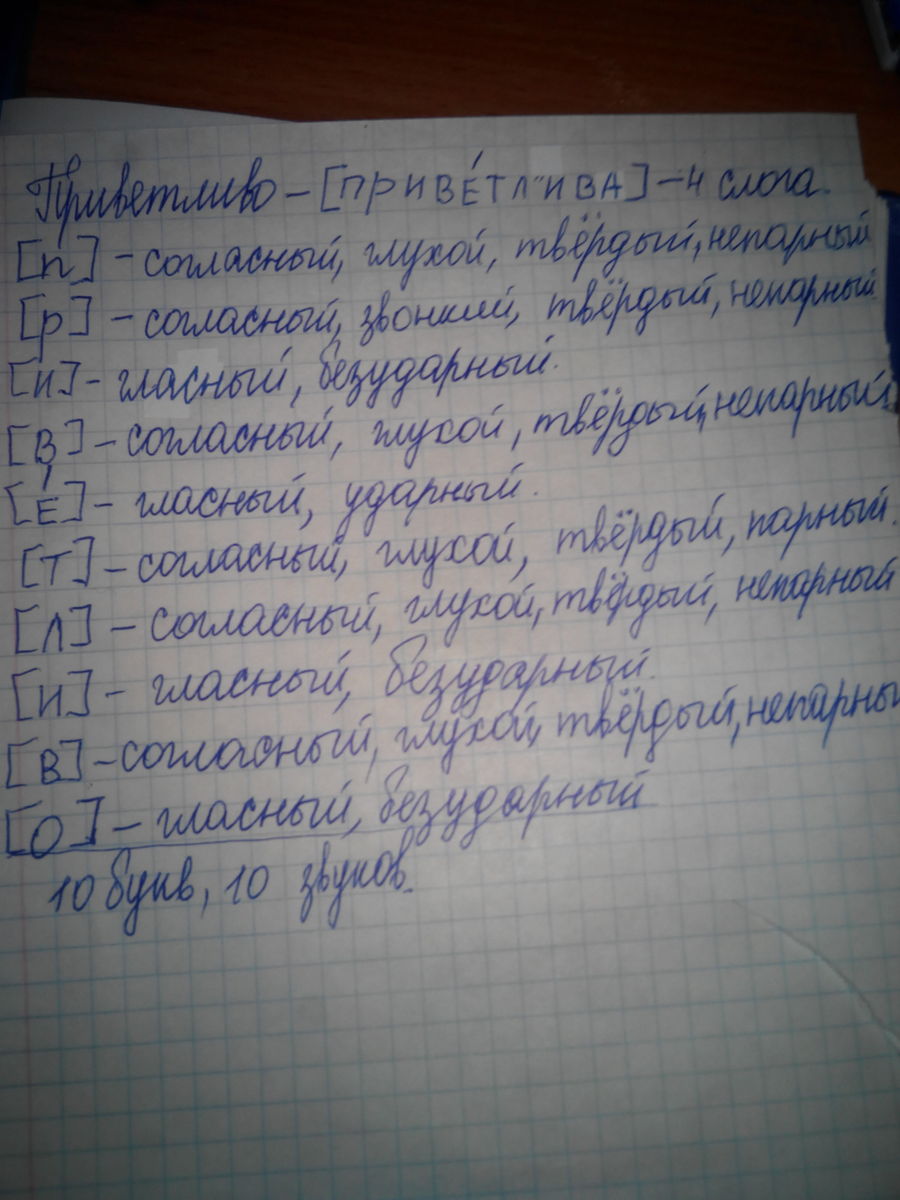 Приветливо – [ПРИВЕ́ТЛ"ИВА] – 4 слога.
[п] – согласный, глухой, твёрдый, непарный
[р] – согласный, звонкий, твёрдый, непарный.
[и] – гласный, безударный.
[В] – согласный, глухой, твёрдый, непарный
[Е́] – гласный, ударный.
[Т] – согласный, глухой, твёрдый, парный.
[Л] – согласный, глухой, твёрдый, непарный
[и] – гласный, безударный.
[В] – согласный, глухой, твёрдый, непарны
[О] – гласный, безударный
10 букв, 10 звуков.